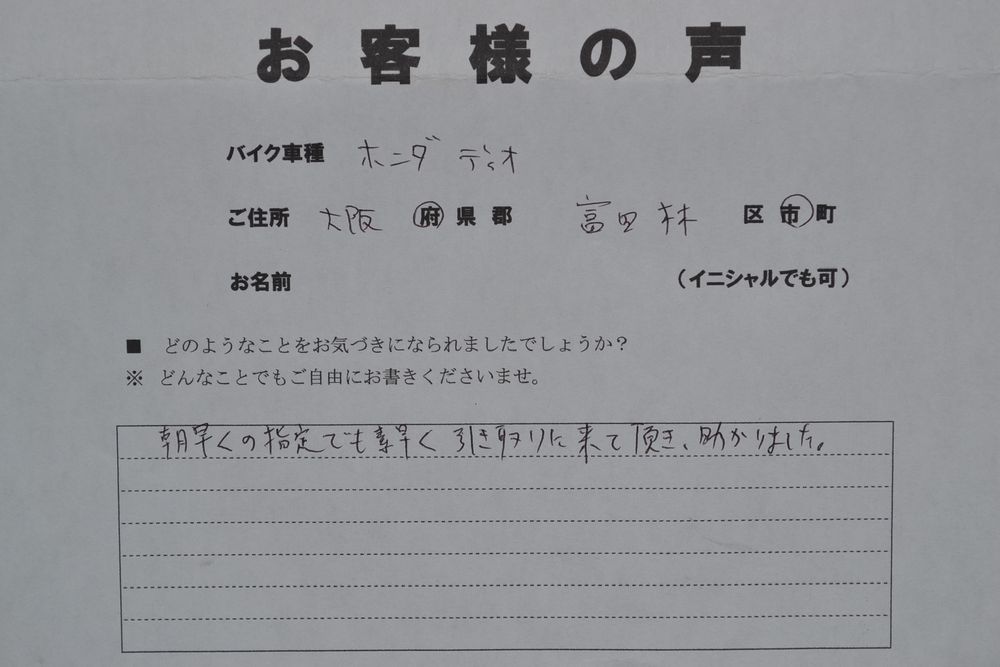 お客様の声
バイク車種 ホンダ ディオ
ご住所 大阪 府 県 郡 富田林 区 市 町
お名前 （イニシャルでも可）
■ どのようなことをお気づきになられましたでしょうか？
※ どんなことでもご自由にお書きくださいませ。
朝早くの指定でも素早く引き取りに来て頂き、助かりました。